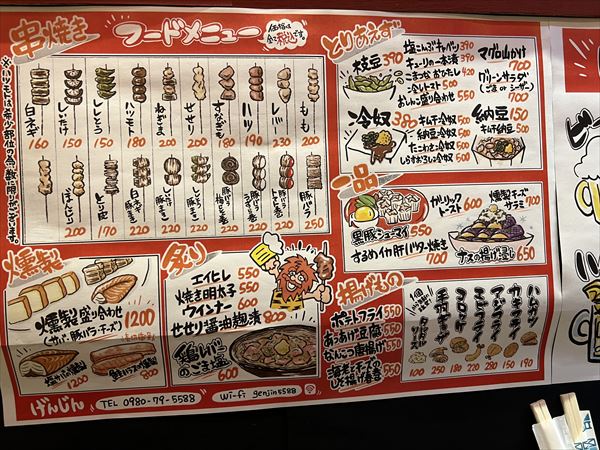 串焼き
フードメニュー
価格は全て税込です。
※ハツモトは希少部位の為数に限りがございます。
もも 150
レバー 230
ハツ 190
すなぎも 180
せせり 200
ねぎま 200
ハツモト 180
ししとう 150
しいたけ 150
白ネギ 160
豚バラ 250
とり皮 170
ぼんじり 200
とりあえず
枝豆 390
塩こんぶキャベツ 390
キューリの一本漬 390
こまつなおひたし 420
冷しトマト 500
おしんこ盛り合わせ 550
マグロ山かけ 700
グリーンサラダ 700
(ごま or シーザー)
冷奴 380
キムチ冷奴 500
納豆冷奴 500
たこわさ冷奴 500
しらすおろし冷奴 500
納豆 150
キムチ納豆 500
一品
黒豚シューマイ 550
ガーリックトースト 600
燻製チーズサラミ 700
するめイカ肝バター焼き 700
ナスの揚げ浸し 650
燻製
燻製盛り合わせ 1200
(サバ・豚バラ・チーズ)
1200
800
炙り
エイヒレ 550
焼き明太子 550
ウインナー 600
せせり醤油麹漬 800
鶏レバーのごま塩 600
揚げもの
ポテトフライ 550
あつあげ豆腐 550
なんこつ唐揚げ 550
海老とチーズのしそ揚げ春巻 550
ハムカツ 190
カキフライ 150
アジフライ 280
エビフライ 290
コロッケ 180
100
250
220
げんじん
TEL 0980-79-5588
Wi-fi genjin5588